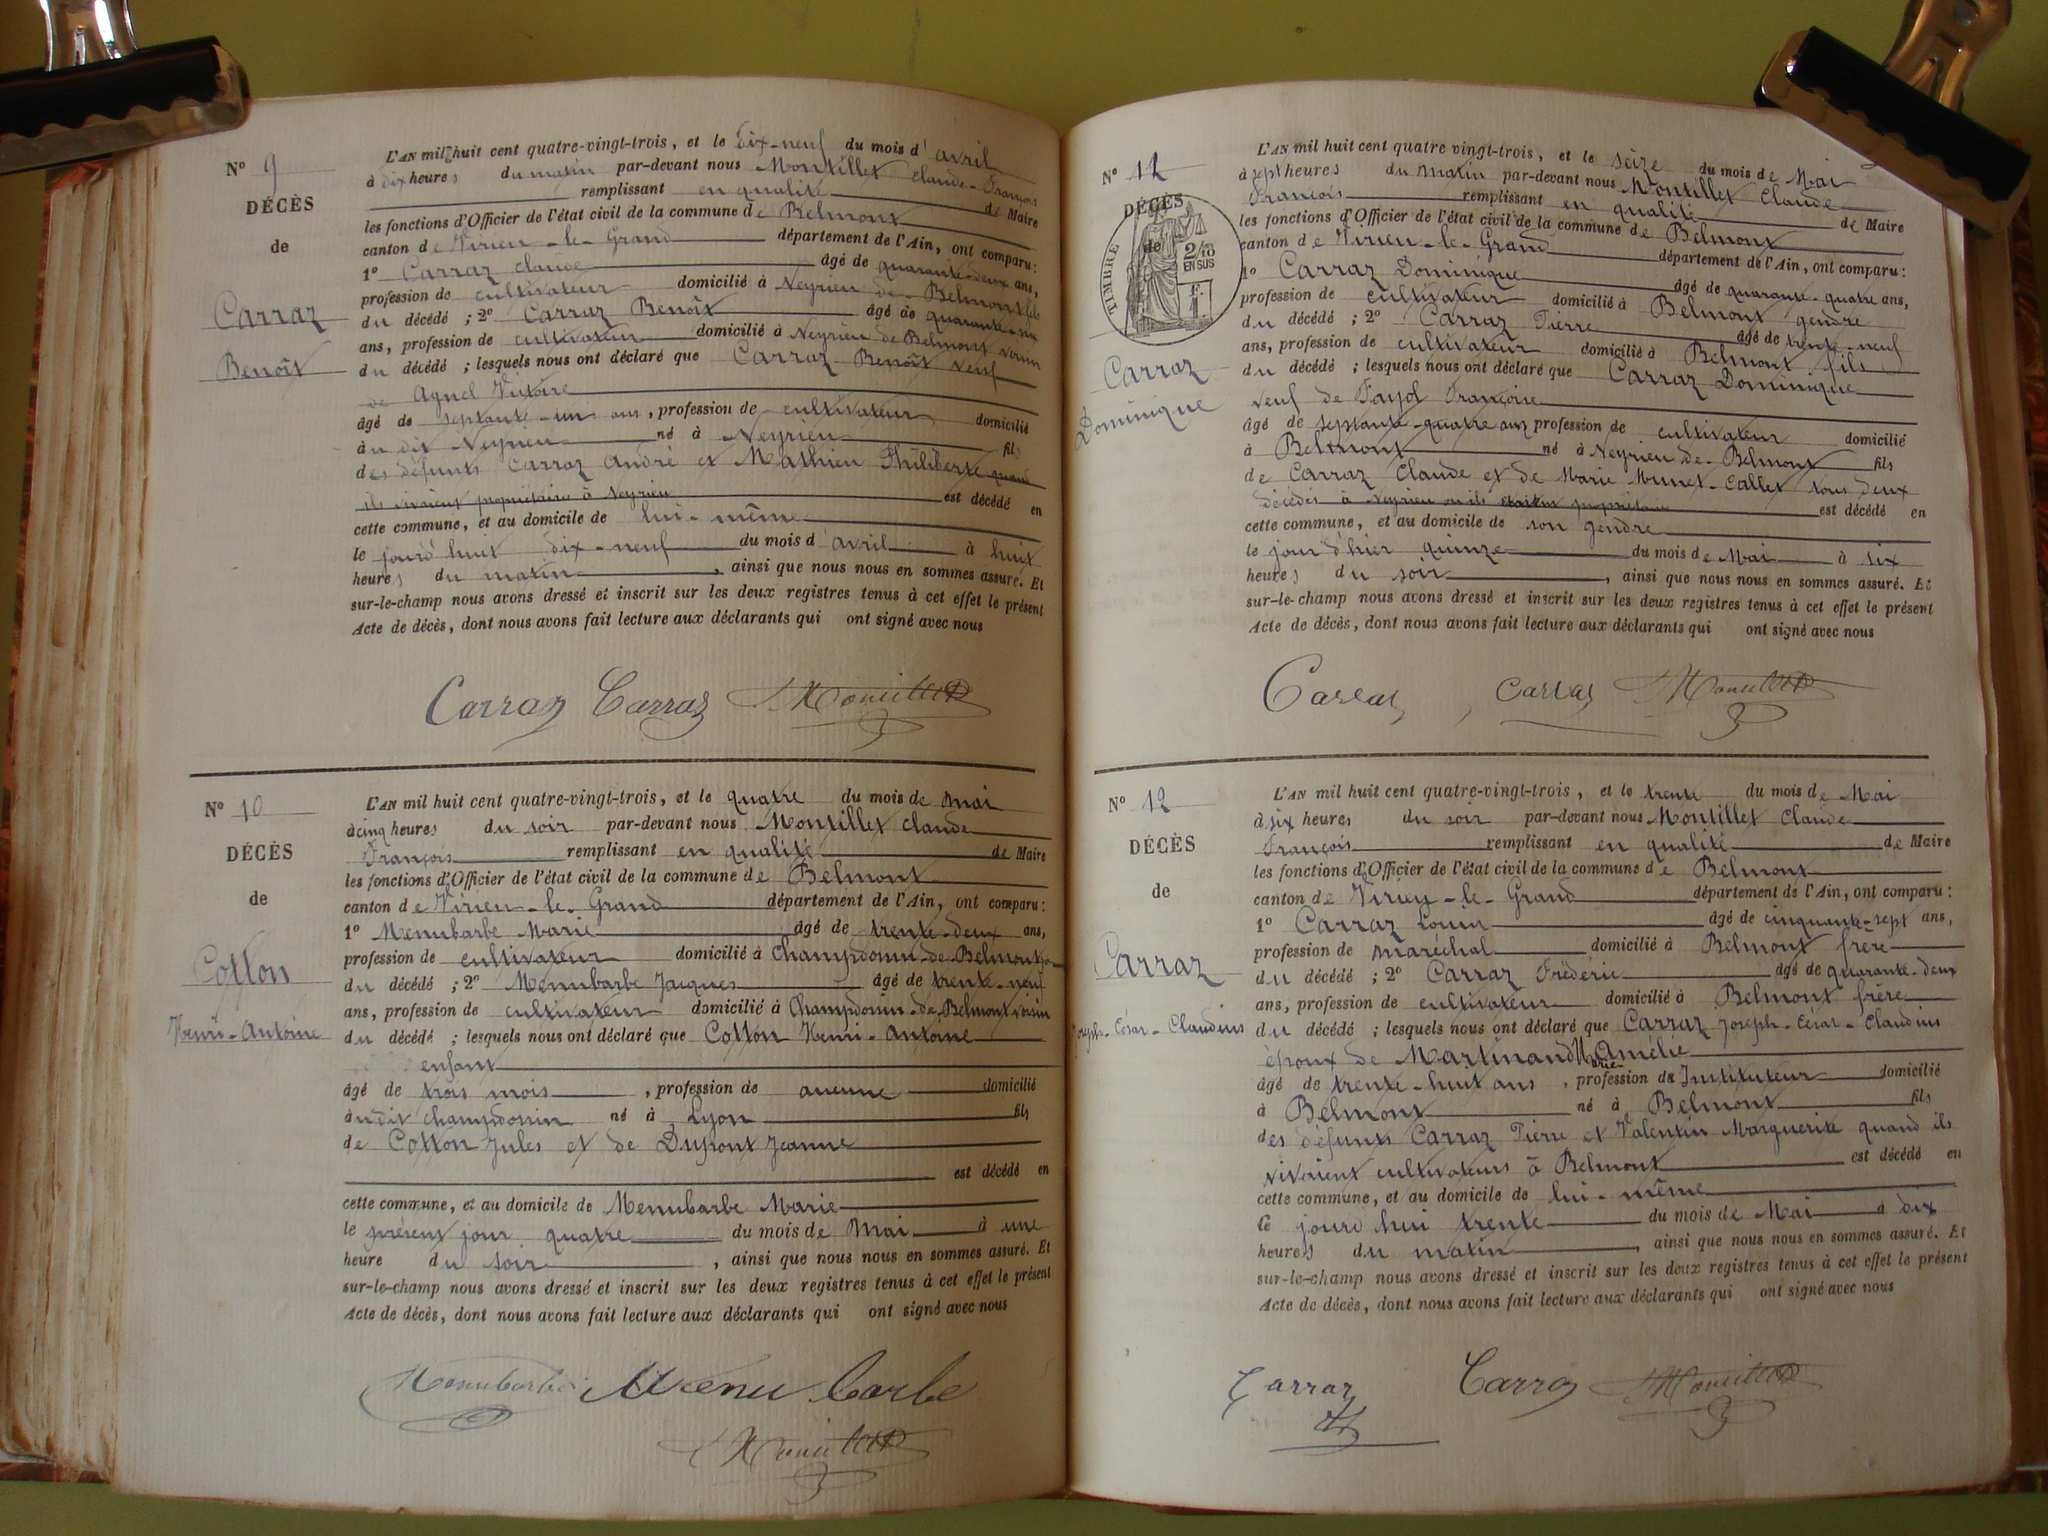 N° 9
DÉCÈS
de
Carraz
Benoît
L'AN mil huit cent quatre-vingt-trois, et le Dix-neuf du mois d'avril
à dix heures du matin par-devant nous Montillet Claude-François
remplissant en qualité de Maire
les fonctions d'Officier de l'état civil de la commune de Belmont
canton de Virieu-le-Grand département de l'Ain, ont comparu:
1° Carraz Claude âgé de quarante-deux ans,
profession de cultivateur domicilié à Neyrieu de Belmont fils
du décédé; 2° Carraz Benoît âgé de quarante-
ans, profession de cultivateur domicilié à Neyrieu de Belmont voisin
du décédé; lesquels nous ont déclaré que Carraz Benoît veuf
de Agnel Victoire
âgé de septante-un ans, profession de cultivateur domicilié
à u dit Neyrieu né à Neyrieu fils
des défunts Carraz André et Mathieu Philiberte quand
ils vivaient propriétaire à Neyrieu est décédé en
cette commune, et au domicile de lui-même
le jourd'huit dix-neuf du mois d'avril à huit
heures du matin, ainsi que nous nous en sommes assuré. Et
sur-le-champ nous avons dressé et inscrit sur les deux registres tenus à cet effet le présent
Acte de décès, dont nous avons fait lecture aux déclarants qui ont signé avec nous
Carraz Carraz Montillet
N° 10
DÉCÈS
de
Cotton
Henri-Antoine
L'AN mil huit cent quatre-vingt-trois, et le quatre du mois de mai
à cinq heures du soir par-devant nous Montillet Claude
François remplissant en qualité de Maire
les fonctions d'Officier de l'état civil de la commune de Belmont
canton de Virieu-le-Grand département de l'Ain, ont comparu:
1° Menubarbe Marie âgé de trente-deux ans,
profession de cultivateur domicilié à Champdossin-de-Belmont
du décédé; 2° Menubarbe Jacques âgé de trente-neuf
ans, profession de cultivateur domicilié à Champdossin-de-Belmont voisin
du décédé; lesquels nous ont déclaré que Cotton Henri-Antoine
enfant
âgé de trois mois, profession de aucune domicilié
à udit Champdossin né à Lyon fils
de Cotton Jules et de Dupont Jeanne
est décédé en
cette commune, et au domicile de Menubarbe Marie
le présent jour quatre du mois de Mai à une
heure du soir, ainsi que nous nous en sommes assuré. Et
sur-le-champ nous avons dressé et inscrit sur les deux registres tenus à cet effet le présent
Acte de décès, dont nous avons fait lecture aux déclarants qui ont signé avec nous
Menubarbe Menu barbe
Montillet
N° 11
DÉCÈS
de
TIMBRE
2/10
EN SUS
F.
1.
Carraz
Dominique
L'AN mil huit cent quatre vingt-trois, et le seize du mois de Mai
à sept heures du matin par-devant nous Montillet Claude
François remplissant en qualité de Maire
les fonctions d'Officier de l'état civil de la commune de Belmont
canton de Virieu-le-Grand département de l'Ain, ont comparu:
1° Carraz Dominique âgé de quarante-quatre ans,
profession de cultivateur domicilié à Belmont gendre
du décédé; 2° Carraz Pierre âgé de trente-neuf
ans, profession de cultivateur domicilié à Belmont fils
du décédé; lesquels nous ont déclaré que Carraz Dominique
veuf de Fayol Françoise
âgé de septante-quatre ans profession de cultivateur domicilié
à Belmont né à Neyrieu de Belmont fils
de Carraz Claude et de Marie Munet-Callet tous deux
décédés à Neyrieu où ils étaient propriétaire est décédé en
cette commune, et au domicile de son gendre
le jour d'hier quinze du mois de Mai à six
heures du soir, ainsi que nous nous en sommes assuré. Et
sur-le-champ nous avons dressé et inscrit sur les deux registres tenus à cet effet le présent
Acte de décès, dont nous avons fait lecture aux déclarants qui ont signé avec nous
Carraz Carraz Montillet
N° 12
DÉCÈS
de
Carraz
Joseph-César-Claudius
L'AN mil huit cent quatre-vingt-trois, et le trente du mois de Mai
à six heures du soir par-devant nous Montillet Claude
François remplissant en qualité de Maire
les fonctions d'Officier de l'état civil de la commune de Belmont
canton de Viriey-le-Grand département de l'Ain, ont comparu:
1° Carraz Louis âgé de cinquante-sept ans,
profession de maréchal domicilié à Belmont frère
du décédé; 2° Carraz Frédéric âgé de quarante-deux
ans, profession de cultivateur domicilié à Belmont frère
du décédé; lesquels nous ont déclaré que Carraz Joseph-César-Claudius
époux de Martinand Marie Amélie
âgé de trente-huit ans, profession de Instituteur domicilié
à Belmont né à Belmont fils
des défunts Carraz Pierre et Valentin Marguerite quand ils
vivaient cultivateurs à Belmont est décédé en
cette commune, et au domicile de lui-même
le jourd'hui trente du mois de Mai à dix
heures du matin, ainsi que nous nous en sommes assuré. Et
sur-le-champ nous avons dressé et inscrit sur les deux registres tenus à cet effet le présent
Acte de décès, dont nous avons fait lecture aux déclarants qui ont signé avec nous
Carraz Carraz Montillet